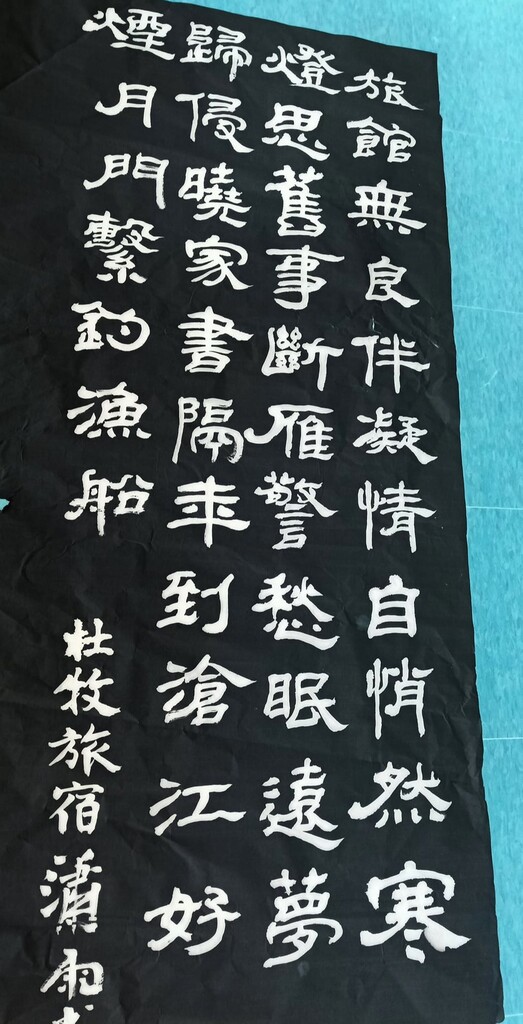 旅館無良伴凝情自悄然寒
燈思舊事斷雁警愁眠遠夢
歸侵曉家書隔年到滄江好
煙月門繫釣漁船
杜牧旅宿瀟雨書